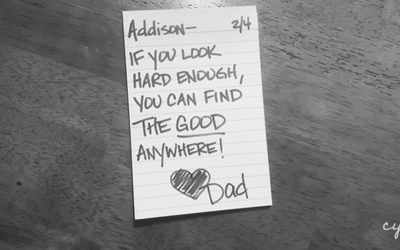 Addison— 2/4
IF YOU LOOK
HARD ENOUGH,
YOU CAN FIND
THE GOOD
ANYWHERE!
Dad
cy